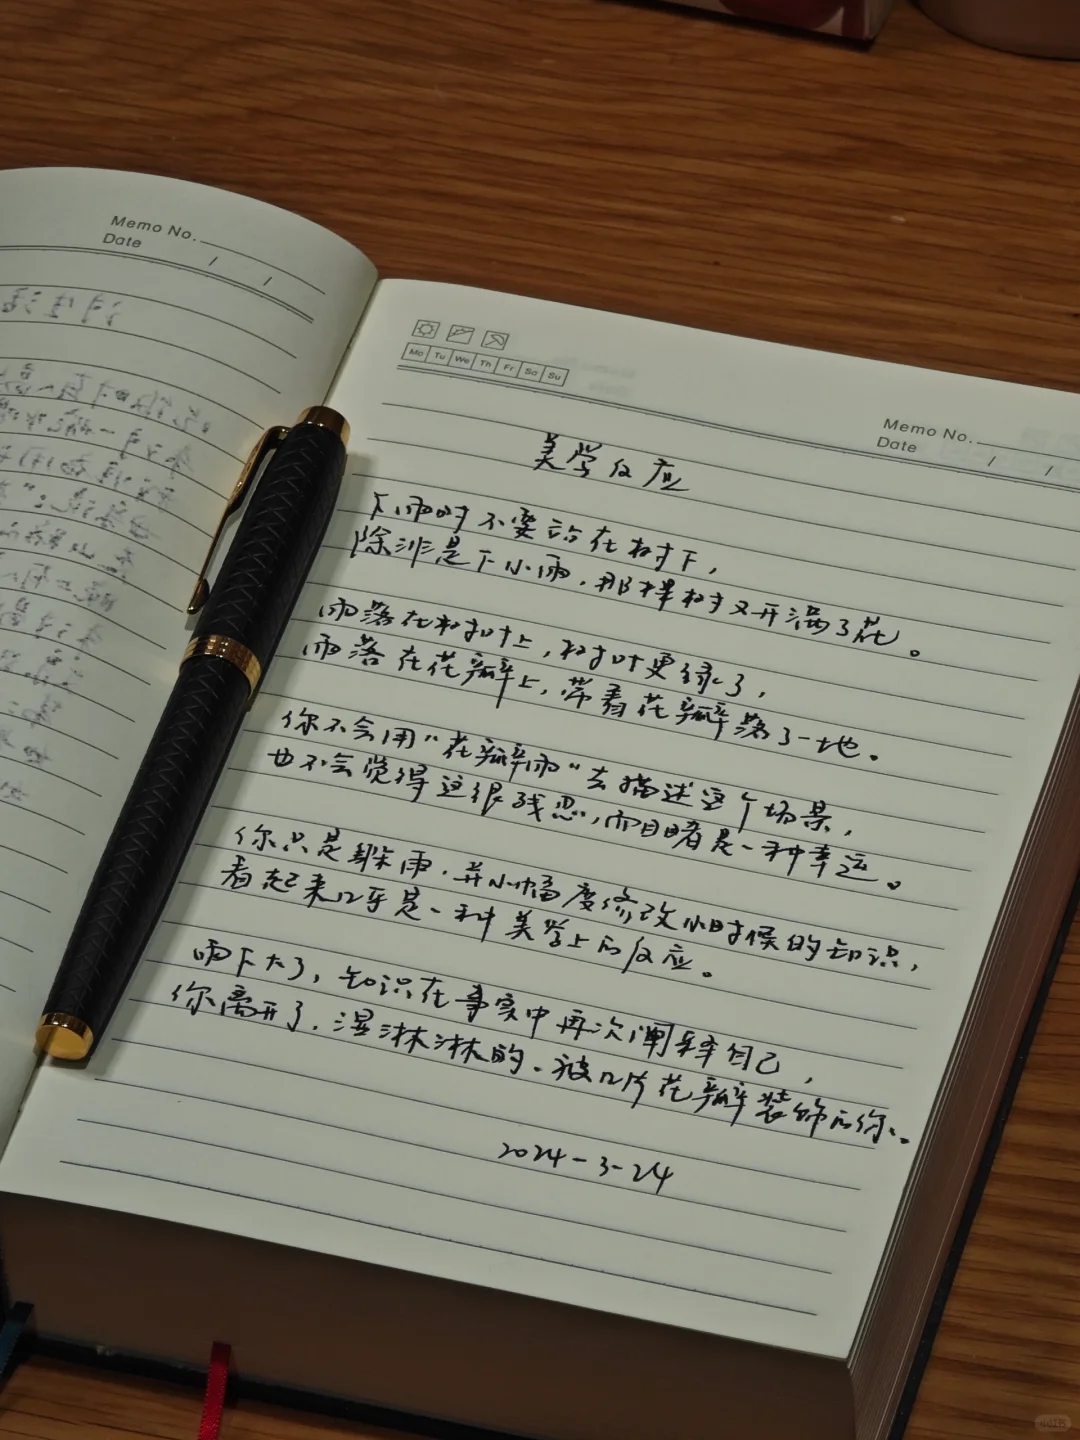 Memo No.
Date / /
Mo Tu We Th Fr Sa Su
Memo No.
Date / /
美学反应
下雨时不要站在树下，
除非是下小雨，那棵树又开满了花。
雨落在树叶上，树叶更绿了，
雨落在花瓣上，带着花瓣落了一地。
你不会用“花瓣雨”去描述这个场景，
也不会觉得这很残忍，而目睹是一种幸运。
你只是躲雨，并小幅度修改小时候的知识，
看起来几乎是一种美学上的反应。
雨下大了，知识在事实中再次阐释自己，
你离开了，湿淋淋的，被几片花瓣装饰的你。
2024-3-24